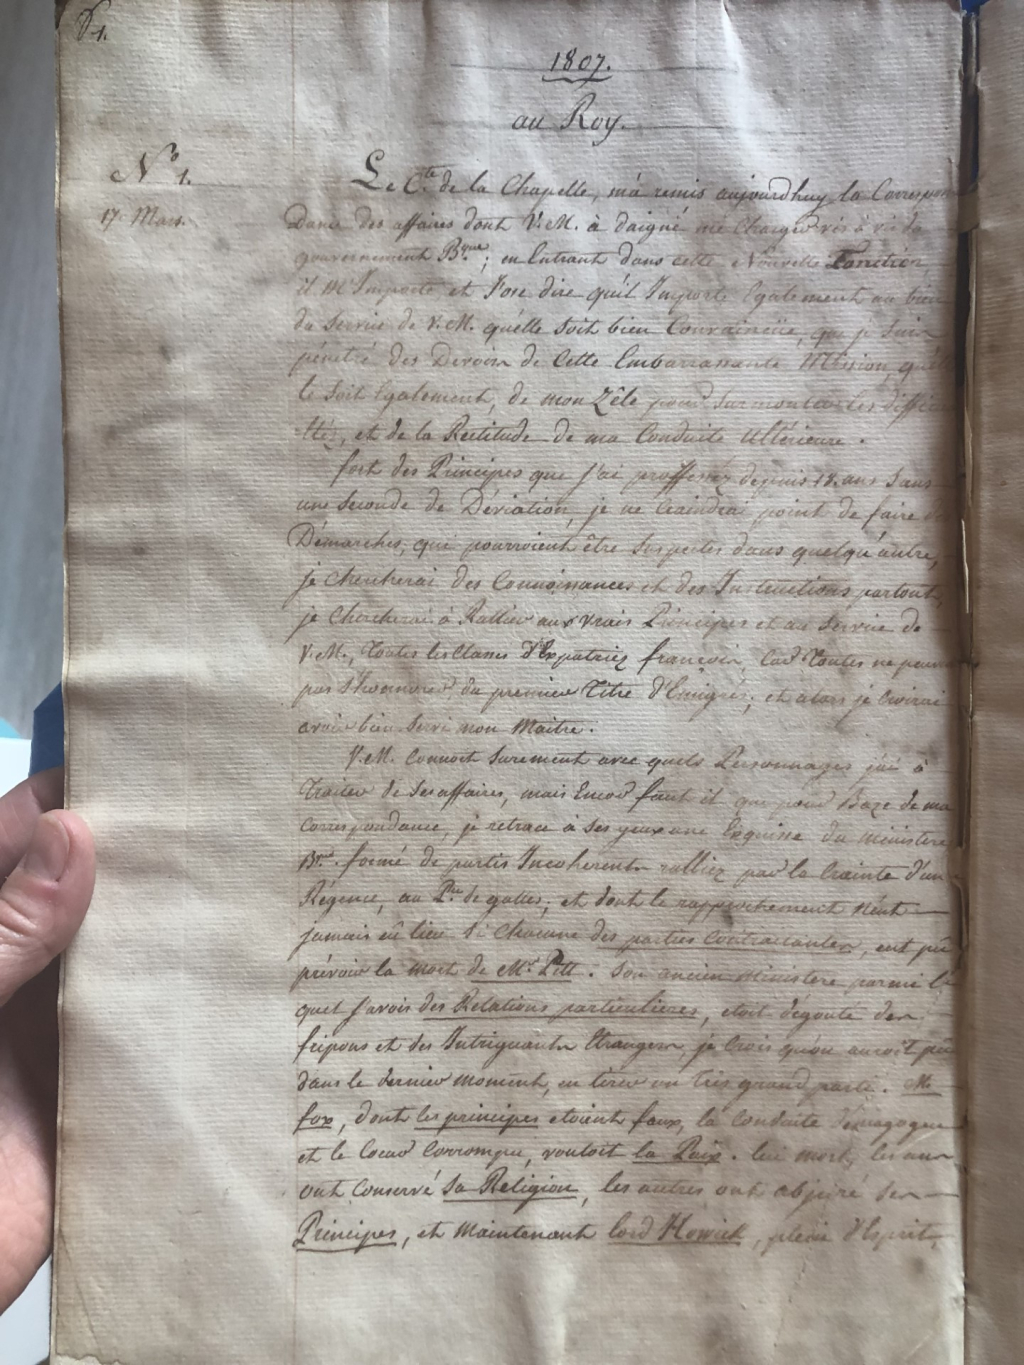 P1.
1807.
au Roy.
N° 1.
17 Mars.
Le C.te de la Chapelle, m'a remis aujourdhuy la Correspon
Dance des affaires dont V.M. à daigné me Charger vis à vis du
gouvernement B.que; en Entrant dans cette Nouvelle Fonction,
il M'Importe, et J'ose dire qu'il Importe Egalement au bien
du Service de V.M. qu'elle soit bien Convaincüe, que je suis
pénétré des Devoirs de Cette Embarrassante Mission, qu'el
le soit Egalement, de mon Zêle pour Surmonter les difficu
ltéz, et de la Rectitude de ma Conduite ultérieure.
fort des Principes que J'ai proffessez depuis 18. ans Sans
une Seconde de Déviation, je ne Craindrai point de faire des
Démarches, qui pourroient être Suspectes dans quelqu'autre,
je chercherai des Connoissances et des Instructions partout,
je Chercherai à Rallier aux vrais Principes et au Service de
V.M., Toutes les Classes d'Expatriez françois, Car Toutes ne peuvent
pas S'honorer du premier Titre d'Emigré; et alors je Croirai
avoir bien Servi mon Maitre.
V.M. Connoit Surement avec quels Personnages j'ai à
Traiter de Ses affaires, mais Encor faut il que pour Baze de ma
Correspondance, je retrace à Ses yeux une Esquisse du ministere
B.que formé de partis Incoherents ralliez par la Crainte d'une
Régence, au P.ce de galles; et dont le rapprochement N'eut
jamais eû lieu Si Chacune des parties Contractantes, eut pû
prévoir la mort de Mr. Pitt. Son ancien Ministere parmi le
quel J'avois des Relations particulieres, etoit dégouté des
fripons et des Intriguants Etrangers, je Crois qu'on auroit pû
dans le dernier moment, en tirer un Très grand parti. M.
fox, dont les principes etoient faux, la Conduite démagogue
et le Coeur Corrompu, vouloit la Paix. lui mort, les uns
ont Conservé Sa Religion, les autres ont abjuré Ses
Principes, et Maintenant lord Howick, plein d'Esprit,